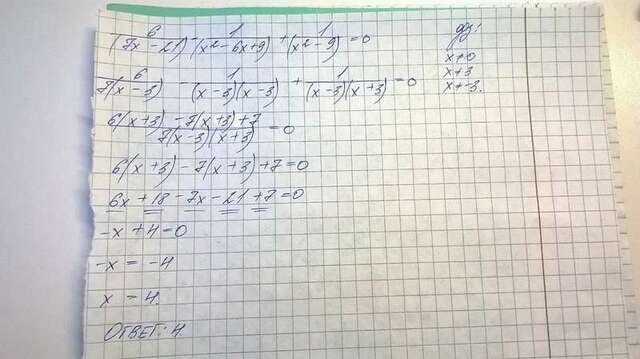 6/(7x - 21) - 1/(x² - 6x + 9) + 1/(x² - 9) = 0
6/7(x - 3) - 1/(x - 3)(x - 3) + 1/(x - 3)(x + 3) = 0
6(x + 3) - 7(x + 3) + 7/7(x - 3)(x + 3) = 0
6(x + 3) - 7(x + 3) + 7 = 0
6x + 18 - 7x - 21 + 7 = 0
-x + 4 = 0
-x = -4
x = 4.
ОТВЕТ: 4
ОДЗ:
x ≠ 0
x ≠ 3
x ≠ -3.